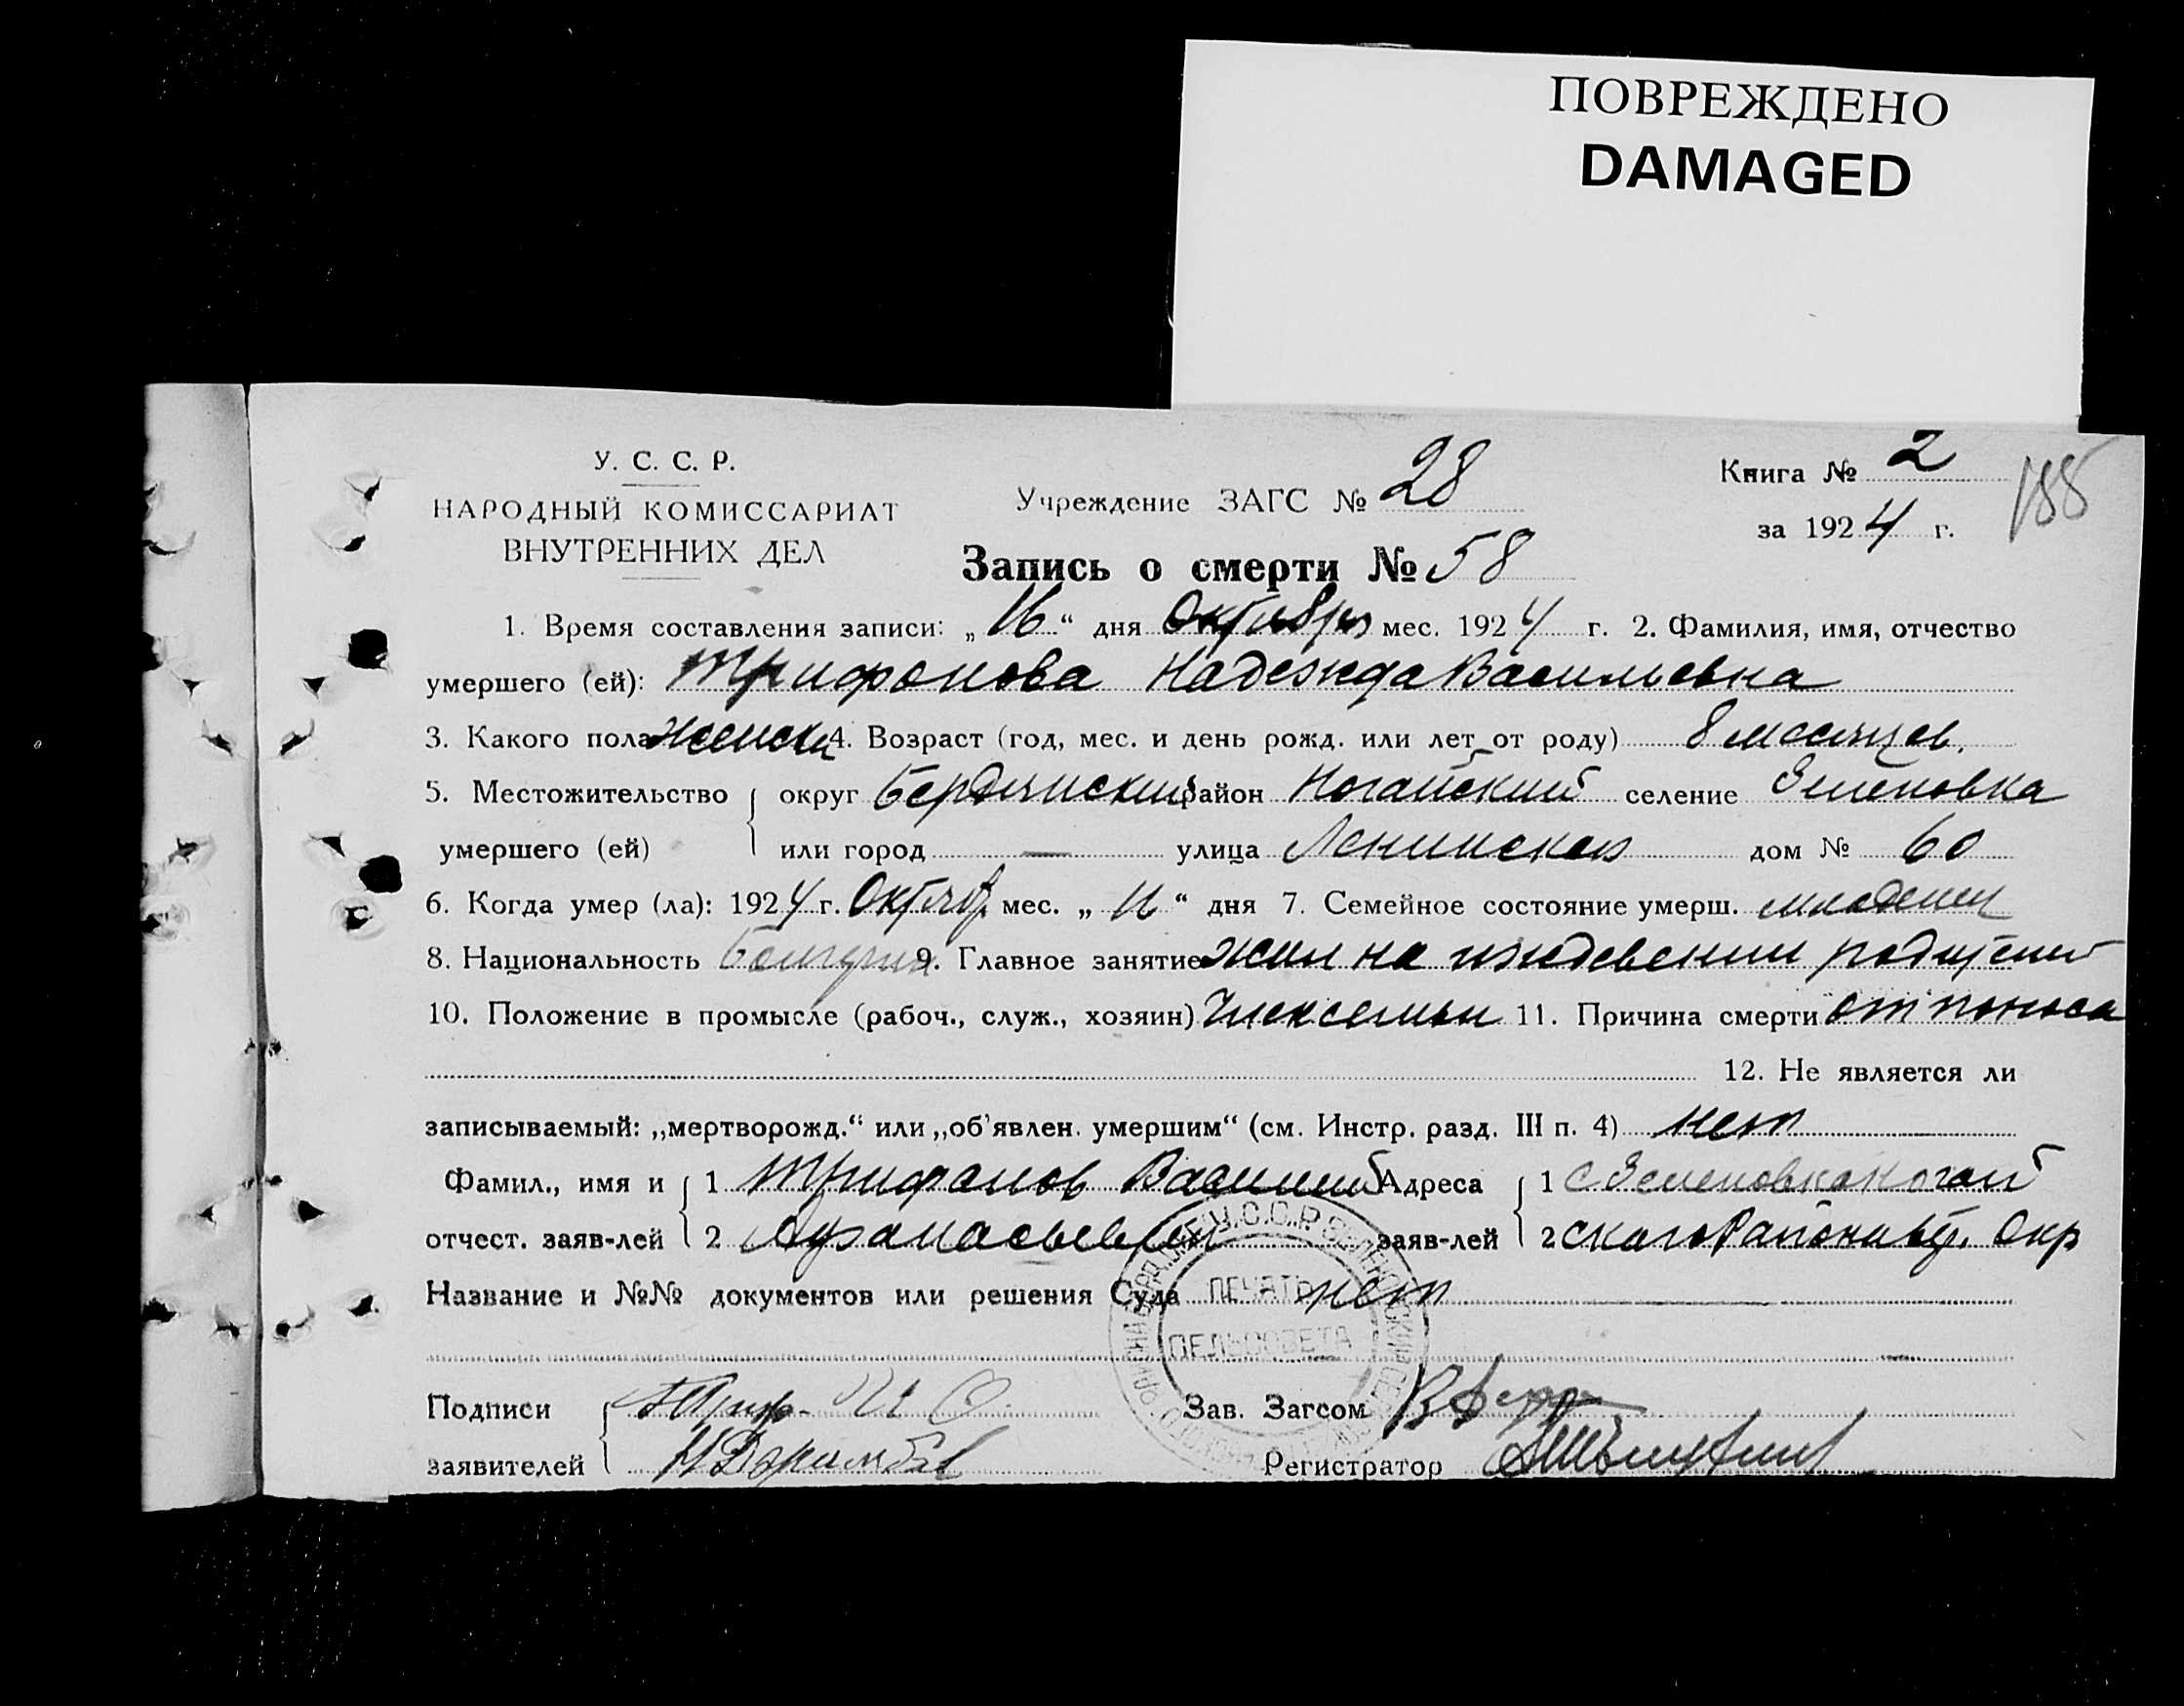 ПОВРЕЖДЕНО
DAMAGED
У. С. С. Р.
НАРОДНЫЙ КОМИССАРИАТ
ВНУТРЕННИХ ДЕЛ
Учреждение ЗАГС № 28
Книга № 2
за 1924 г.
188
Запись о смерти № 58
1. Время составления записи: „16“ дня Октября мес. 1924 г. 2. Фамилия, имя, отчество
умершего (ей): Трифонова Надежда Васильевна
3. Какого пола женски 4. Возраст (год, мес. и день рожд. или лет от роду) 8 месяцев.
5. Местожительство округ Бердянский район Ногайский селение Зеленовка
умершего (ей) или город — улица Ленинская дом № 60
6. Когда умер (ла): 1924 г. Октябр мес. „ “ дня 7. Семейное состояние умерш. младенец
8. Национальность 9. Главное занятие жил на иждевении родителей
10. Положение в промысле (рабоч., служ., хозяин) Член семьи 11. Причина смерти от поноса
12. Не является ли
записываемый: „мертворожд.“ или „об'явлен. умершим“ (см. Инстр. разд. III п. 4) нет
Фамил., имя и 1 Трифонов Василий Адреса 1 с Зеленовка Ногай
отчест. заяв-лей 2 Афанасьевич заяв-лей 2 скаго Района Окр
Название и №№ документов или решения Суда нет
ПЕЧАТЬ
СЕЛЬСОВЕТА
Подписи Зав. Загсом
заявителей Регистратор